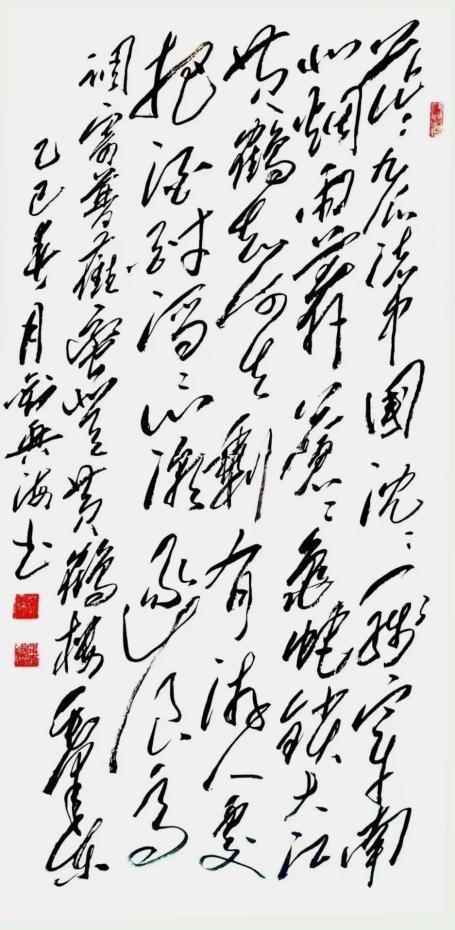 茫々九派流中国沉々一线穿南
北烟雨莽苍々龟蛇锁大江
黄鹤知何去剩有游人处
把酒酹滔々心潮逐浪高
调寄菩萨蛮登黄鹤楼毛泽东
乙巳春月兴海书